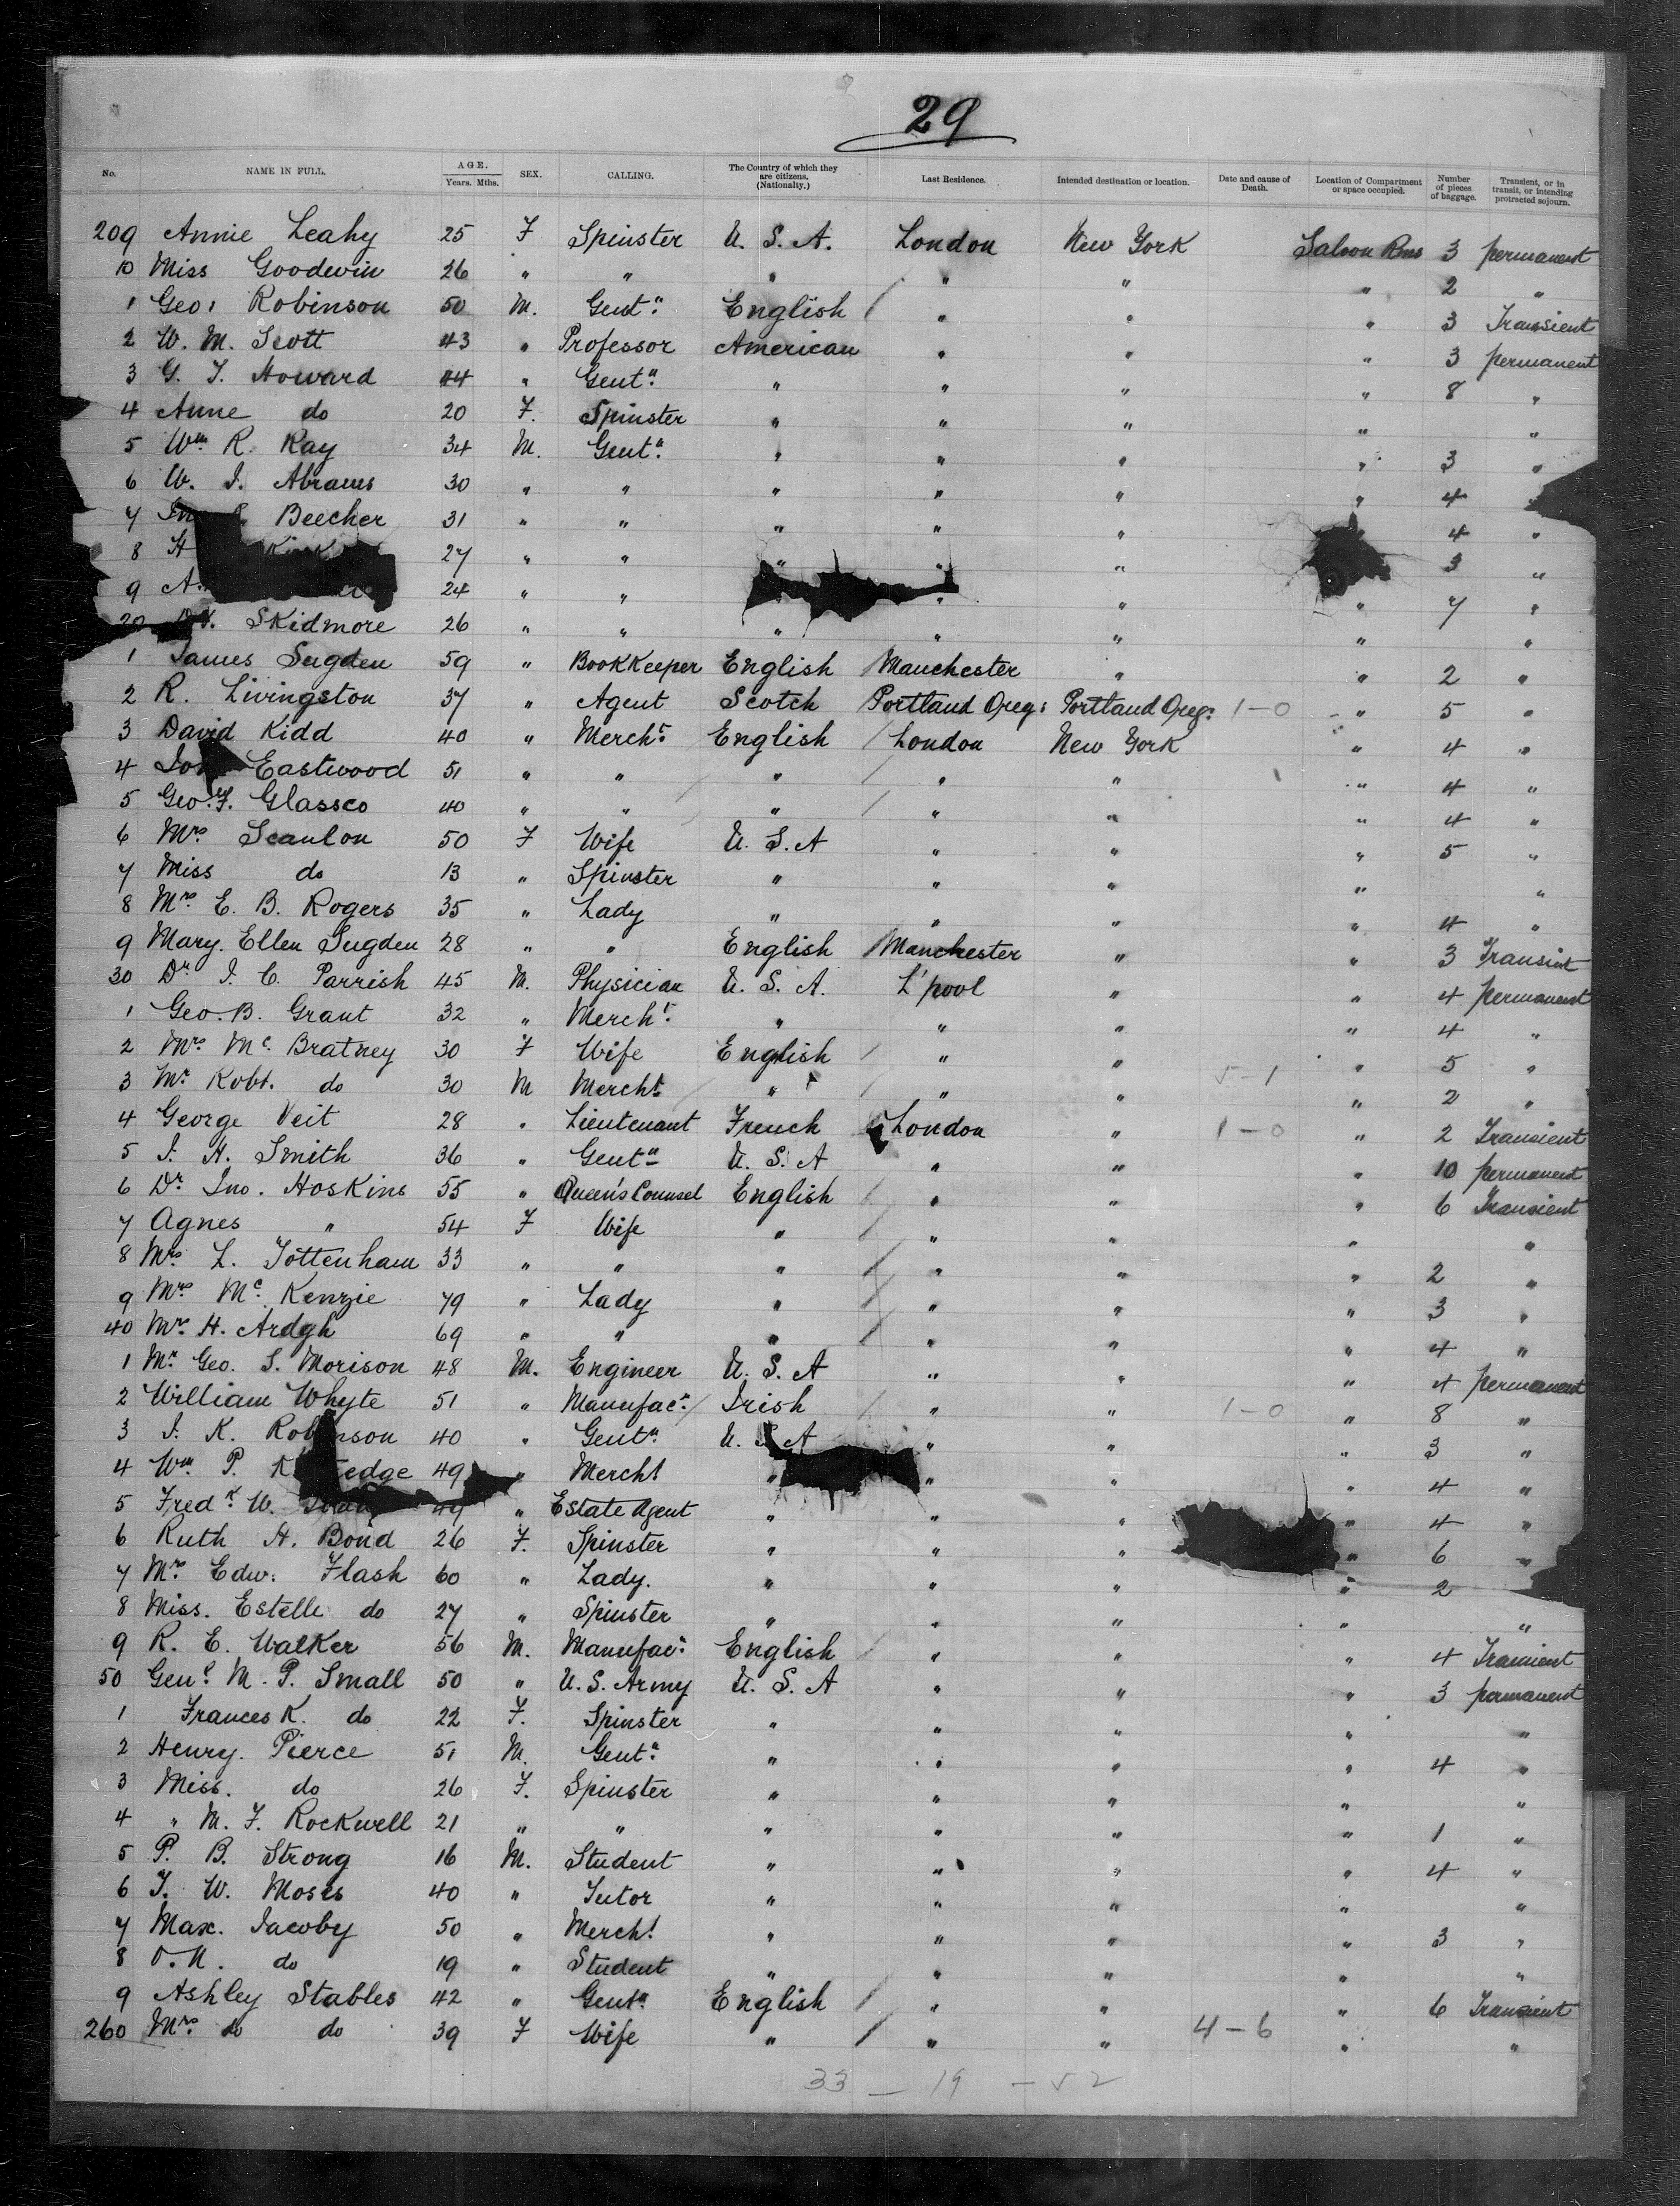 29
No. NAME IN FULL. AGE. Years. Mths. SEX. CALLING. The Country of which they are citizens. (Nationalty.) Last Residence. Intended destination or location. Date and cause of Death. Location of Compartment or space occupied. Number of pieces of baggage. Transient, or in transit, or intending protracted sojourn.
209 Annie Leahy 25 F Spinster U. S. A. London New York Saloon Rms 3 permanent
10 Miss Goodwin 26 " " " " " " 2 "
1 Geo: Robinson 50 M. Gentn. English / " " " 3 Transient
2 W. M. Scott 43 " Professor American " " " 3 permanent
3 G. T. Howard 44 " Gentn. " " " " 8 "
4 Anne do 20 F. Spinster " " " " "
5 Wm. R. Ray 34 M. Gentn. " " " " 3 "
6 W. I. Abrams 30 " " " " " " 4
7 Beecher 31 " " " " " 4 "
8 H 27 " " " " " 3 "
9 A. 24 " " " " " 7 "
20 Skidmore 26 " " " " " " "
1 James Sugden 59 " BookKeeper English / Manchester " " 2 "
2 R. Livingston 37 " Agent Scotch Portland Oreg: Portland Oreg: 1-0 " 5 "
3 David Kidd 40 " Mercht. English / London New York " 4 "
4 Eastwood 51 " " / " / " " " 4 "
5 Geo. F. Glassco 40 " " / " / " " " 4 "
6 Mrs. Scanlon 50 F Wife U. S. A " " " 5 "
7 Miss do 13 " Spinster " " " " "
8 Mrs E. B. Rogers 35 " Lady " " " " 4 "
9 Mary. Ellen Sugden 28 " " English / Manchester " " 3 Transint
30 Dr I. C. Parrish 45 M. Physician U. S. A. L'pool " " 4 permanent
1 Geo. B. Grant 32 " Mercht. " " " " 4 "
2 Mrs. Mc. Bratney 30 F Wife English / " " " 5 "
3 Mr Robt. do 30 M Mercht. / " / " " 5-1 " 2 "
4 George Veit 28 " Lieutenant French London " 1-0 " 2 Transient
5 J. H. Smith 36 " Gentn U. S. A " " " 10 permanent
6 Dr. Jno. Hoskins 55 " Queen's Counsel English / " " " 6 Transient
7 Agnes " 54 F Wife " / " " " "
8 Mrs. L. Tottenham 33 " " " / " " " 2 "
9 Mrs Mc. Kenzie 79 " Lady " / " " " 3 "
40 Mrs. H. Ardgh 69 " " " / " " " 4 "
1 Mr. Geo. S. Morison 48 M. Engineer U. S. A " " " 4 permanent
2 William Whyte 51 " Manufacr. / Irish / " " 1-0 " 8 "
3 J. K. Robinson 40 " Gentn. U. S. A " " " 3 "
4 Wm. P. 49 " Mercht " " " " 4 "
5 Fredk. W. 49 " Estate Agent " " " " 4 "
6 Ruth H. Bond 26 F. Spinster " " " " 6 "
7 Mrs. Edw: Flash 60 " Lady. " " " " 2
8 Miss. Estelle do 27 " Spinster " " " " "
9 R. E. Walker 56 M. Manufacr. English / " " " 4 Transient
50 Genl. M. P. Small 50 " U. S. Army U. S. A " " " 3 permanent
1 Frances K. do 22 F. Spinster " " " " "
2 Henry. Pierce 51 M. Gentn. " " " " 4 "
3 Miss. do 26 F. Spinster " " " " "
4 " M. F. Rockwell 21 " " " " " " 1 "
5 P. B. Strong 16 M. Student " " " " 4 "
6 T. W. Moses 40 " Tutor " " " " "
7 Max. Jacoby 50 " Mercht. " " " " 3 "
8 O. N. do 19 " Student " " " " "
9 Ashley Stables 42 " Gentn. English / " " " 6 Transient
260 Mrs. do do 39 F Wife " / " " 4-6 " "
33 - 19 - 52